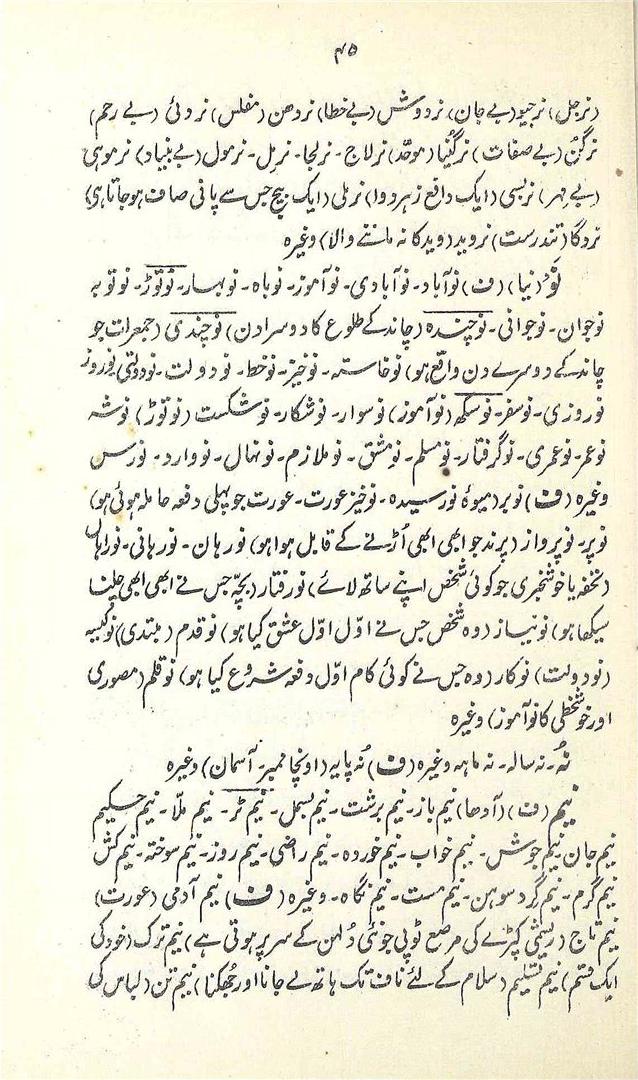 ۴۵
(نرجل) نرجیو (بے جان) نردوش (بے خطا) نردھن (مفلس) نردئی (بے رحم)
نرگن (بے صفات) نرگنیا (موحد) نرلاج - نرلجا - نرمل - نرمول (بے بنیاد) نرموہی
(بے مہر) نربسی (ایک دافع زہر دوا) نرملی (ایک بیج جس سے پانی صاف ہو جاتا ہی)
نروگا (تندرست) نروید (وید کا نہ ماننے والا) وغیرہ
نَو (نیا) (ف) نوآباد - نوآبادی - نوآموز - نوباہ - نوبہار - نوتوڑ - نوتوبہ
نوجوان - نوجوانی - نوچندہ (چاند کے طلوع کا دوسرا دن) نوچندی (جمعرات جو
چاند کے دوسرے دن واقع ہو) نوخاستہ - نوخیز - نوخط - نودولت - نودولتی نوروز
نوروزی - نوسفر - نوسکھ (نوآموز) نوسوار - نوشکار - نوشکست (نوتوڑ) نوشہ
نوعمر - نوعمری - نوگرفتار - نومسلم - نومشق - نوملازم - نونہال - نووارد - نورس
وغیرہ (ف) نوبر (میوۂ نورسیدہ - نوخیز عورت - عورت جو پہلی دفعہ حاملہ ہوئی ہو)
نوپر - نوپرواز (پرند جو ابھی ابھی اُڑنے کے قابل ہوا ہو) نورہان - نورہانی - نوراہاں
(تحفہ یا خوشخبری جو کوئی شخص اپنے ساتھ لائے) نورفتار (بچہ جس نے ابھی ابھی چلنا
سیکھا ہو) نونیاز (وہ شخص جس نے اوّل اوّل عشق کیا ہو) نوقدم (مبتدی) نوکیسہ
(نودولت) نوکار (وہ جس نے کوئی کام اوّل دفعہ شروع کیا ہو) نوقلم (مصوری
اور خوشخطی کا نوآموز) وغیرہ
نُہ - نہ سالہ - نہ ماہہ وغیرہ (ف) نُہ پایہ (اونچا ممبر - آسمان) وغیرہ
نیم (ف) (آدھا) نیم باز - نیم برشت - نیم بسمل - نیم ٹر - نیم ملّا - نیم حکیم
نیم جان نیم جوش - نیم خواب - نیم خوردہ - نیم راضی - نیم روز - نیم سوختہ - نیم کش
نیم گرم - نیم گرد سوہن - نیم مست - نیم نگاہ - وغیرہ (ف) نیم آدمی (عورت)
نیم تاج (ریشمی کپڑے کی مرصع ٹوپی جو نئی دلہن کے سر پر ہوتی ہے) نیم ترک (خود کی
ایک قسم) نیم تسلیم (سلام کے لئے ناف تک ہاتھ لے جانا اور جھکنا) نیم تن (لباس کی